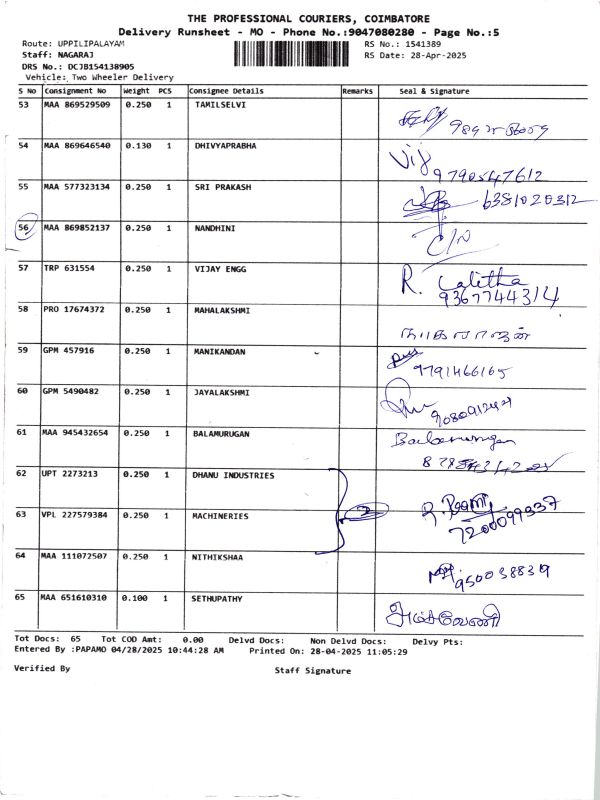 THE PROFESSIONAL COURIERS, COIMBATORE
Delivery Runsheet - MO - Phone No.:9047080280 - Page No.:5
Route: UPPILIPALAYAM
RS No.: 1541389
Staff: NAGARAJ
RS Date: 28-Apr-2025
DRS No.: DCJB154138905
Vehicle: Two Wheeler Delivery
S No Consignment No Weight PCS Consignee Details Remarks Seal & Signature
53 MAA 869529509 0.250 1 TAMILSELVI
54 MAA 869646540 0.130 1 DHIVYAPRABHA
Vij
9790547612
55 MAA 577323134 0.250 1 SRI PRAKASH
6381020312
56 MAA 869852137 0.250 1 NANDHINI
C/N
57 TRP 631554 0.250 1 VIJAY ENGG
R. Lalitha
9367744314
58 PRO 17674372 0.250 1 MAHALAKSHMI
நாகராஜன்
59 GPM 457916 0.250 1 MANIKANDAN
9791466165
60 GPM 5490482 0.250 1 JAYALAKSHMI
61 MAA 945432654 0.250 1 BALAMURUGAN
Balamurugan
62 UPT 2273213 0.250 1 DHANU INDUSTRIES
63 VPL 227579384 0.250 1 MACHINERIES
2
7200099937
64 MAA 111072507 0.250 1 NITHIKSHAA
9500388319
65 MAA 651610310 0.100 1 SETHUPATHY
Tot Docs: 65 Tot COD Amt: 0.00 Delvd Docs: Non Delvd Docs: Delvy Pts:
Entered By :PAPAMO 04/28/2025 10:44:28 AM Printed On: 28-04-2025 11:05:29
Verified By Staff Signature